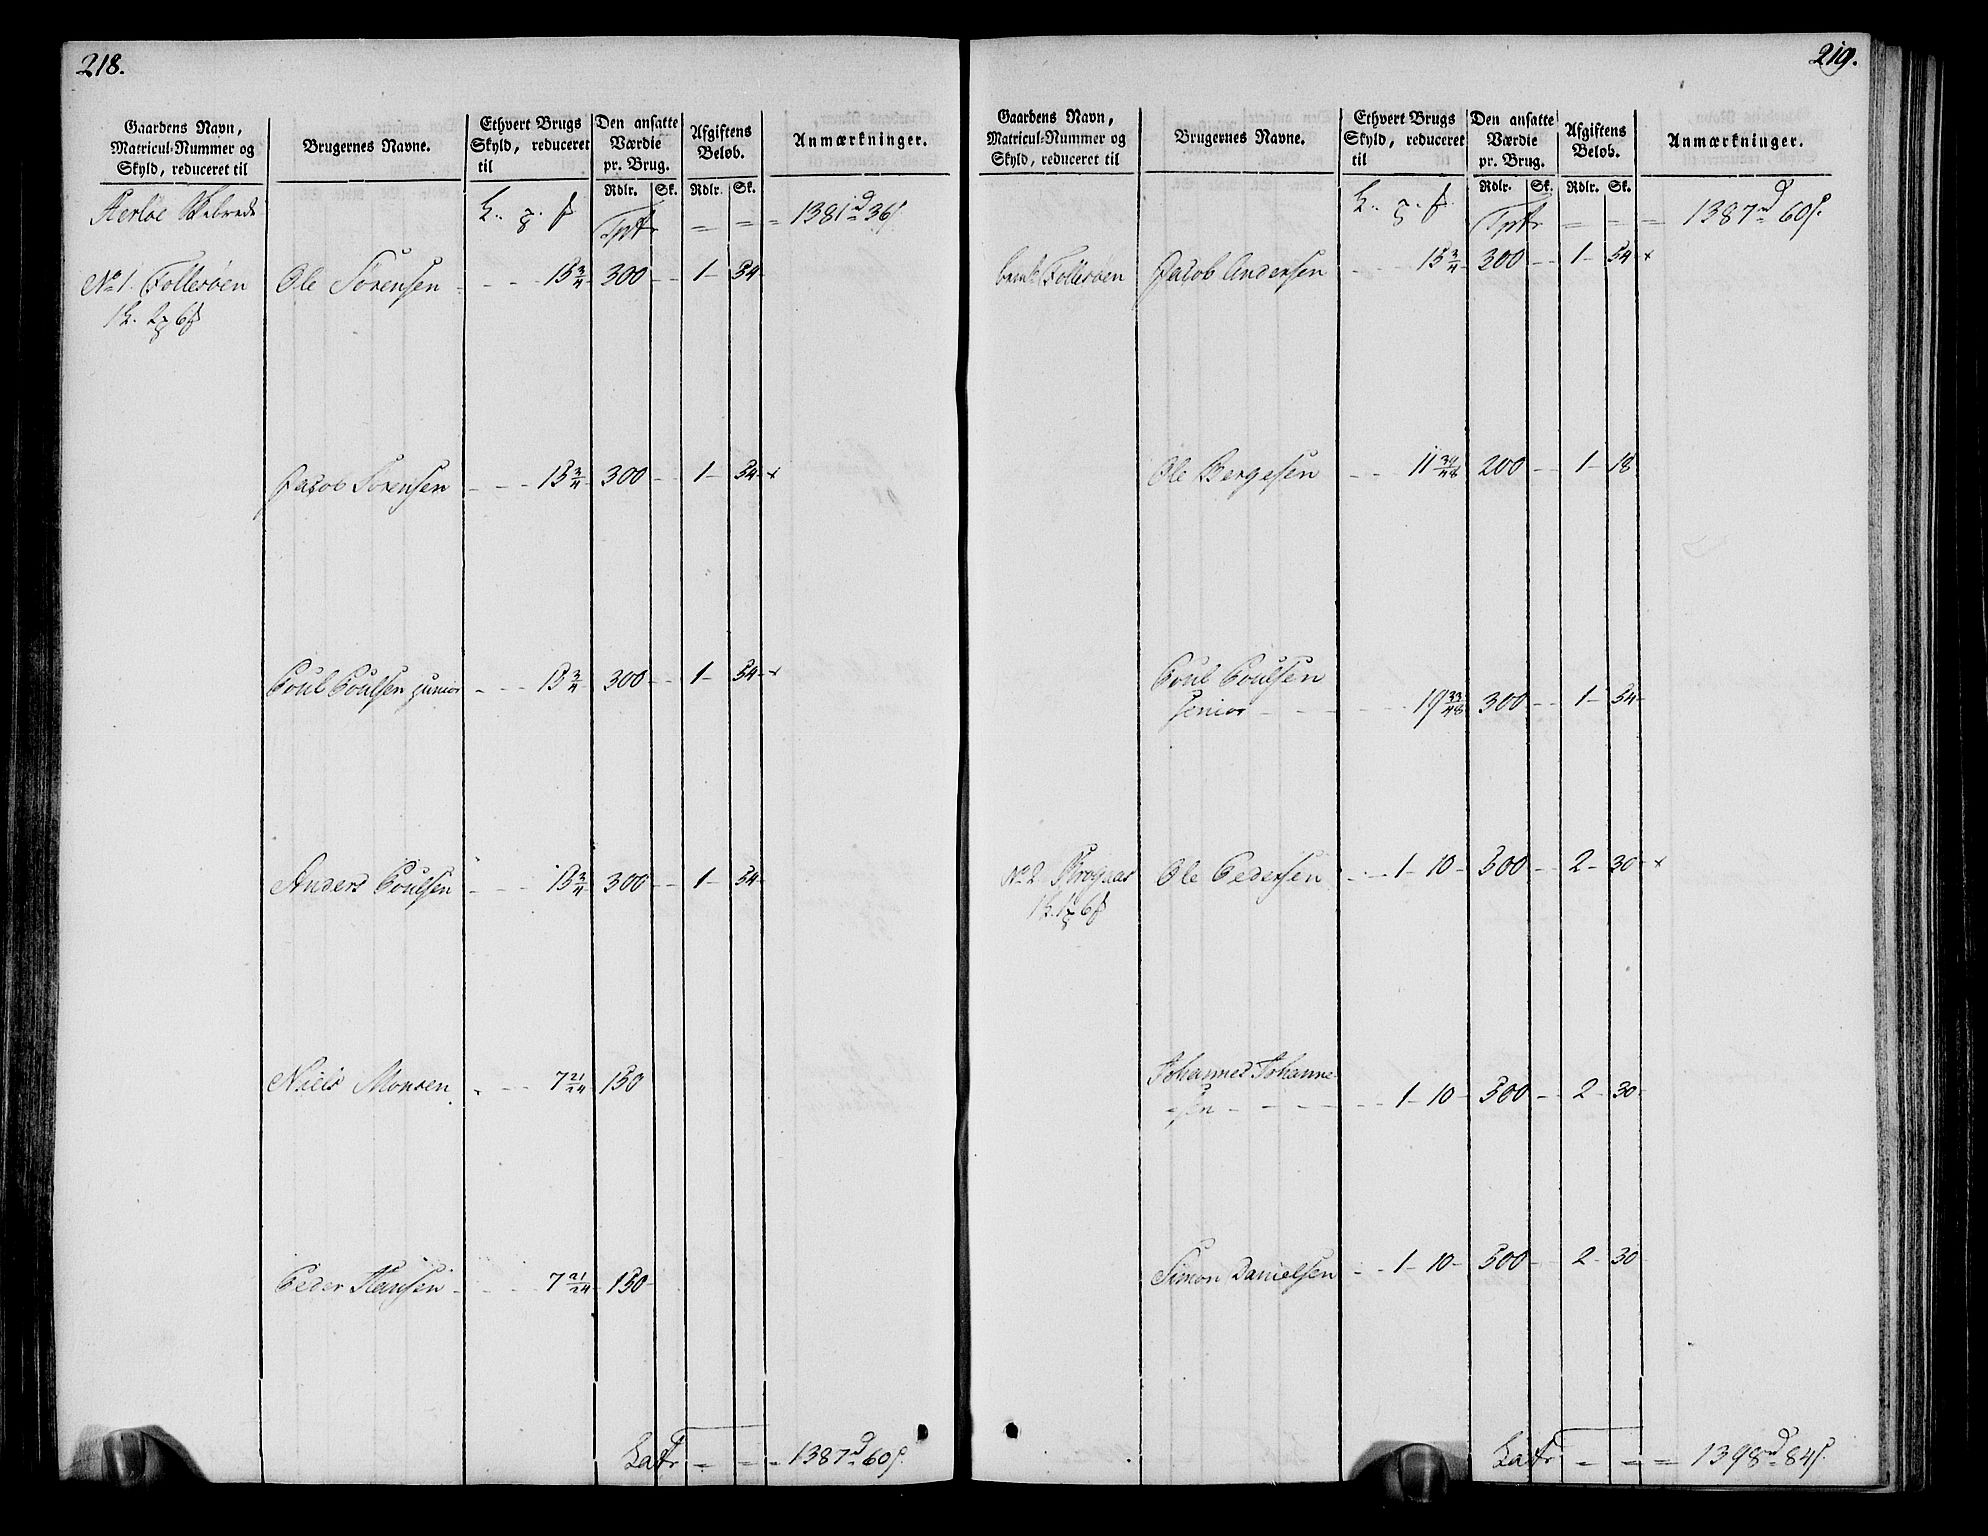 218.
Gaardens Navn,
Matricul-Nummer og
Skyld, reduceret til
Brugernes Navne.
Ethvert Brugs
Skyld, reduceret
til
Den ansatte
Værdie
pr. Brug.
Rdlr. Sk.
Afgiftens
Beløb.
Rdlr. Sk.
Anmærkninger.
Herløe
Tptr = = = 1381 d 36 s.
No 1. Follesøen Ole Sørensen - - - 15 3/4 300 - - 1 - 54 -
Jacob Sørensen - - - 15 3/4 300 - - 1 - 54 - x
Poul Poulsen junior - - - 15 3/4 300 - - 1 - 54 - x
Anders Poulsen - - - 15 3/4 300 - - 1 - 54 -
Niels Monsen - - - 7 21/24 150
Peder Hansen - - - 7 21/24 150 -
Latr = = = 1387 d 60 s.
219.
Gaardens Navn,
Matricul-Nummer og
Skyld, reduceret til
Brugernes Navne.
Ethvert Brugs
Skyld, reduceret
til
Den ansatte
Værdie
pr. Brug.
Rdlr. Sk.
Afgiftens
Beløb.
Rdlr. Sk.
Anmærkninger.
Tptr = = = 1387 d 60 s.
Follesøen Jacob Andersen - - - 15 3/4 300 - - 1 - 54 x
Ole Bergesen - - 11 39/48 200 - - 1 - 18
Poul Poulsen
senior - - - 19 33/48 300 - - 1 - 54 -
No 2 Ole Pedersen - - 1 - 10 - 500 - - 2 - 30 - x
Johannes Johanne-
-sen - - - - 1 - 10 - 500 - - 2 - 30 -
Simon Danielsen - - 1 - 10 - 500 - - 2 - 30
Latr = = = 1398 d 84 s.